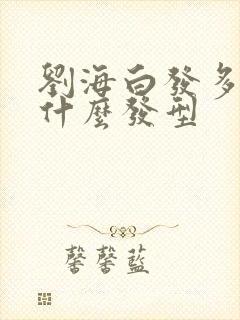 劉海白發多
什麼發型
馨馨藍